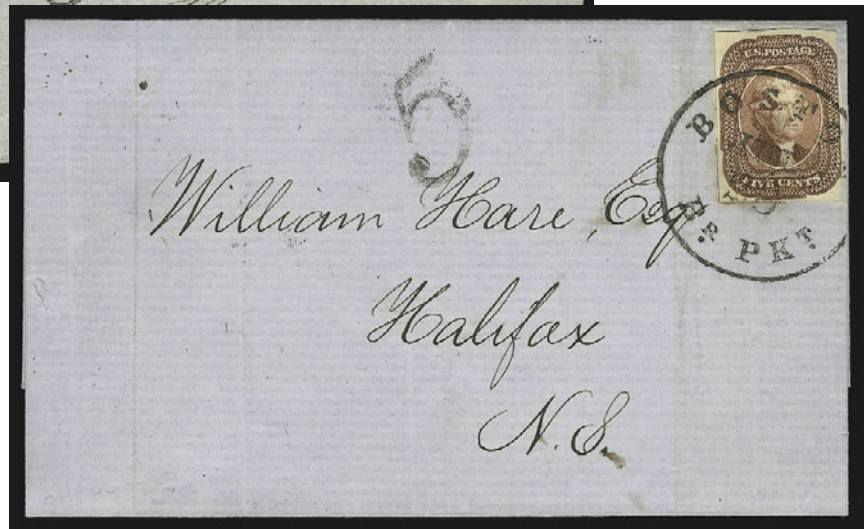 5
U.S. POSTAGE
FIVE CENTS
BOSTO
Br. PKT.
William Hare, Esq
Halifax
N.S.